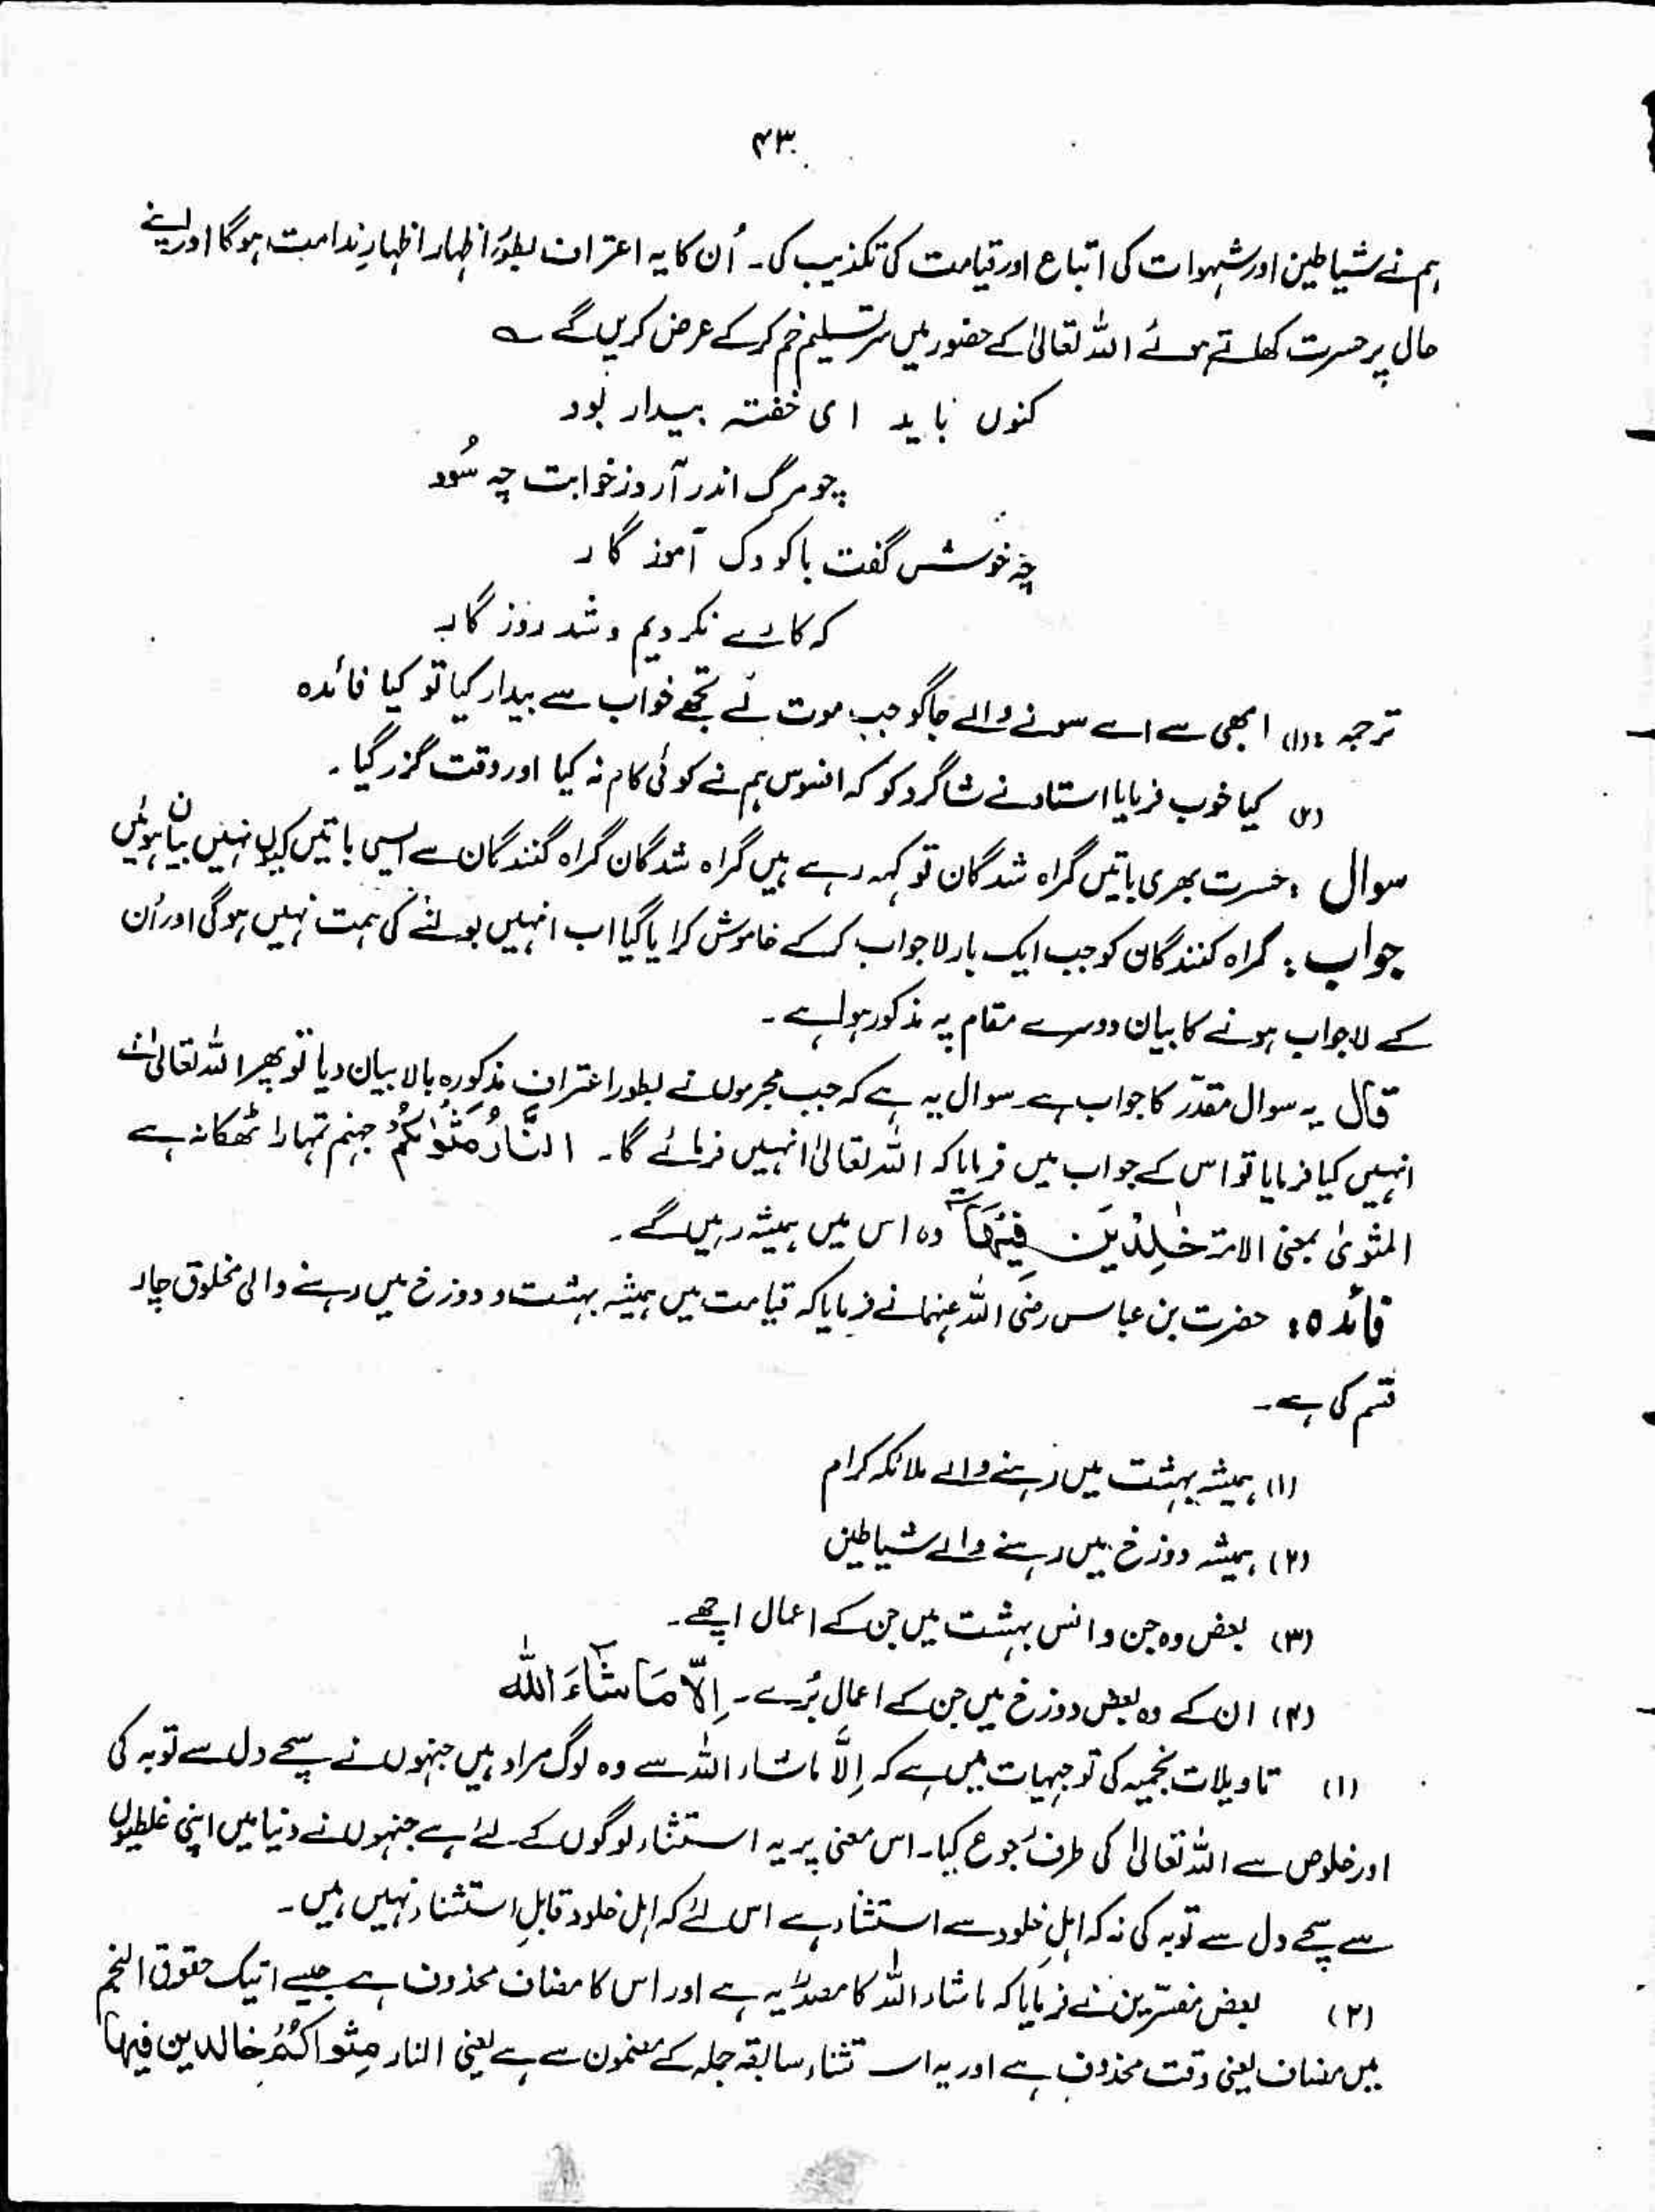 ۴۳
ہم نے شیاطین اور شہوات کی اتباع اور قیامت کی تکذیب کی۔ اُن کا یہ اعتراف بطور اظہار اظہارِ ندامت ہوگا اور اپنے
حال پر حسرت کھاتے ہوئے اللہ تعالیٰ کے حضور میں سر تسلیم خم کر کے عرض کریں گے ؎
کنوں باید ای خفتہ بیدار بود
چو مرگ اندر آروز خوابت چہ سُود
چہ خوش گفت باکودک آموز گار
کہ کارے نکردیم و شد روز گار
ترجمہ :(۱) ابھی سے اے سونے والے جاگو جب موت نے تجھے خواب سے بیدار کیا تو کیا فائدہ
(۲) کیا خوب فرمایا استاد نے شاگرد کو کہ افسوس ہم نے کوئی کام نہ کیا اور وقت گزر گیا۔
سوال : حسرت بھری باتیں گراہ شدگان تو کہہ رہے ہیں گراہ شدگان گراہ گنندگان سے ایسی باتیں کیوں نہیں بیان ہوئیں
جواب : گراہ کنندگان کو جب ایک بار لاجواب کر کے خاموش کرایا گیا اب انہیں بولنے کی ہمت نہیں ہوگی اور اُن
کے لاجواب ہونے کا بیان دوسرے مقام پہ مذکور ہوا ہے۔
قال یہ سوال مقدّر کا جواب ہے۔ سوال یہ ہے کہ جب مجرموں نے بطور اعتراف مذکورہ بالا بیان دیا تو پھر اللہ تعالیٰ نے
انہیں کیا فرمایا تو اس کے جواب میں فرمایا کہ اللہ تعالیٰ انہیں فرمائے گا۔ النَّارُ مَثْوٰىكُمْ جہنم تمہارا ٹھکانہ ہے
المثویٰ بمعنی الامتہ خٰلِدِیْنَ فِیْهَا وہ اس میں ہمیشہ رہیں گے۔
فائدہ : حضرت بن عباس رضی اللہ عنہما نے فرمایا کہ قیامت میں ہمیشہ بہشت و دوزخ میں رہنے والی مخلوق چار
قسم کی ہے۔
(۱) ہمیشہ بہشت میں رہنے والے ملائکہ کرام
(۲) ہمیشہ دوزخ میں رہنے والے شیاطین
(۳) بعض وہ جن و انس بہشت میں جن کے اعمال اچھے۔
(۴) ان کے وہ بعض دوزخ میں جن کے اعمال بُرے۔ اِلَّا مَا شَآءَ اللّٰه
(۱) تاویلات نجمیہ کی توجیہات میں ہے کہ اِلَّا ماشاء اللہ سے وہ لوگ مراد ہیں جنہوں نے سچے دل سے توبہ کی
اور خلوص سے اللہ تعالیٰ کی طرف رجوع کیا۔ اس معنی پر یہ استثناء لوگوں کے لئے ہے جنہوں نے دنیا میں اپنی غلطیوں
سے سچے دل سے توبہ کی نہ کہ اہلِ خلود سے استثناء ہے اس لئے کہ اہل خلود قابلِ استثناء نہیں ہیں۔
(۲) بعض مفسّرین نے فرمایا کہ ماشاء اللہ کا مصدریہ ہے اور اس کا مضاف محذوف ہے جیسے اتیک حقوق النجم
میں مضاف یعنی وقت محذوف ہے اور یہ استثناء سابقہ جملہ کے مضمون سے ہے یعنی النار مثواکُمُ خالدین فیہا